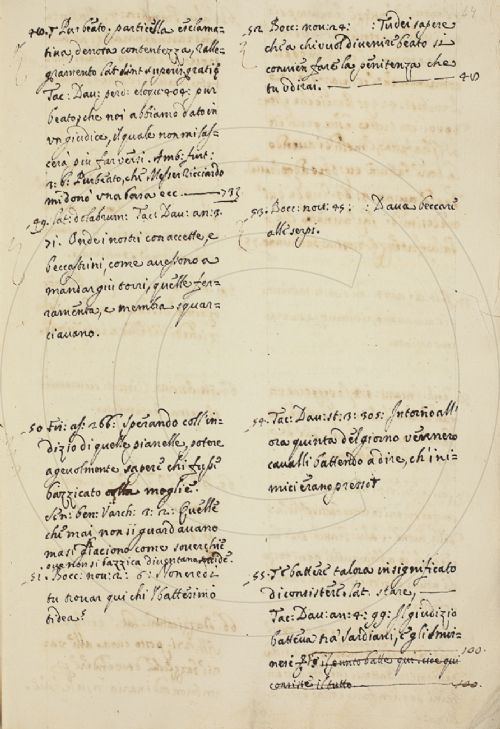 48. Pur beato. particella esclama-
tiva, denota contentezza, ralle-
gramento lat. sint superis gratię
Tac: Dav: perd: eloqu: 404: pur
beato, che noi abbiamo dato in
un giudice, il quale non mi las-
cerà più far versi. Amb: furt:
Pur beato, ch'è Messer Ricciardo
mi donò una bara ecc.
49. lat. dolabrum: Tac: Dav: an: 3.
71. Onde i nostri con accette, e
beccastrini, come avessono a
mandar giù torri, quelle fer-
ramenta, e membra squar-
ciavano.
50 Fir: as: 266: Sperando coll'in-
dizio di quelle pianelle, potere
agevolmente sapere chi fusse
bazzicato colla moglie.
Sen: ben: Varch: 3: 2: Quelle
che mai non si guardavano
ma si giaciono come soverchie
51. Bocc: nov: 2: 6: Non vedi
tu trovar qui chi 'l battesimo
ti dea?
64
52. Bocc: nov: 24: : Tu dei sapere
ch'a chi vuol divenire beato si
convien fare la penitenza che
tu udirai.
53. Bocc: nov: 45: : Dava beccare
alle serpi.
54. Tac: Dav: st: 3: 305: Intorno all'
ora quinta del giorno vennero
cavalli battendo a dire, ch'i ni-
mici erano presso
55. battere talora in significato
di consistere. lat. stare,
Tac: Dav: an: 4: 99: Il giudizio
batteva tra Sardiani, e gli Smir-
nei: il punto batte qui, cioè qui
consiste il tutto 100.